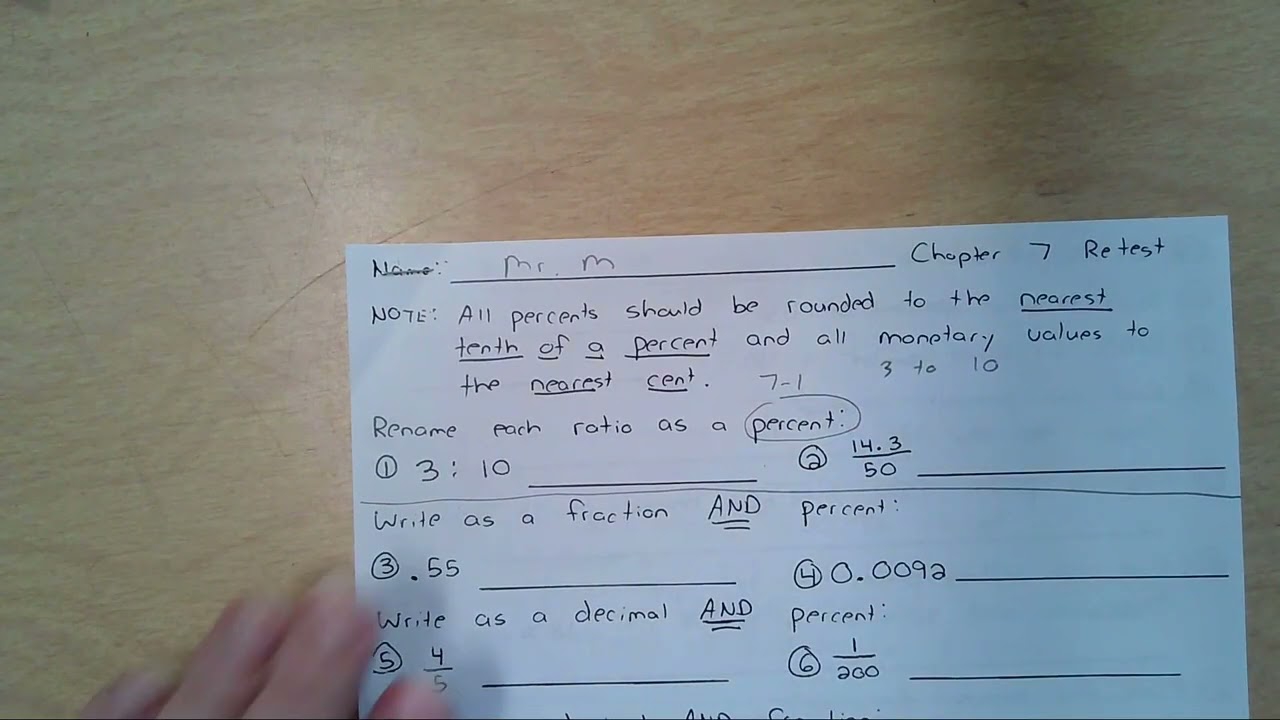 Name: Mr. M Chapter 7 Retest
NOTE: All percents should be rounded to the nearest
tenth of a percent and all monetary values to
the nearest cent. 7-1 3 to 10
Rename each ratio as a percent:
① 3 : 10 ② 14.3/50
Write as a fraction AND percent:
③ .55 ④ 0.0092
Write as a decimal AND percent:
⑤ 4/5 ⑥ 1/200
AND